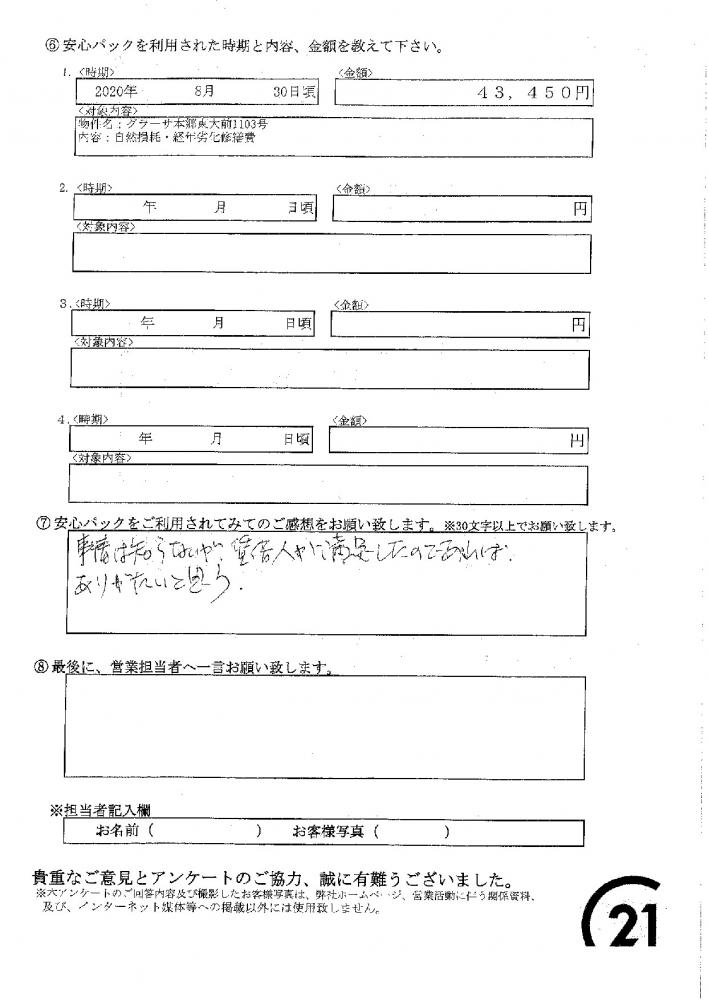 ⑥安心パックを利用された時期と内容、金額を教えて下さい。
1.〈時期〉 〈金額〉
2020年 8月 30日頃 43,450円
〈対象内容〉
物件名：グラーサ本郷東大前1103号
内容：自然損耗・経年劣化修繕費
2.〈時期〉 〈金額〉
年 月 日頃 円
〈対象内容〉
3.〈時期〉 〈金額〉
年 月 日頃 円
〈対象内容〉
4.〈時期〉 〈金額〉
年 月 日頃 円
〈対象内容〉
⑦安心パックをご利用されてみてのご感想をお願い致します。※30文字以上でお願い致します。
事情は知らないが、賃借人が満足したのであれば、
ありがたいと思う。
⑧最後に、営業担当者へ一言お願い致します。
※担当者記入欄
お名前（ ） お客様写真（ ）
貴重なご意見とアンケートのご協力、誠に有難うございました。
※本アンケートのご回答内容及び撮影したお客様写真は、弊社ホームページ、営業活動に伴う関係資料、
及び、インターネット媒体等への掲載以外には使用致しません。
21